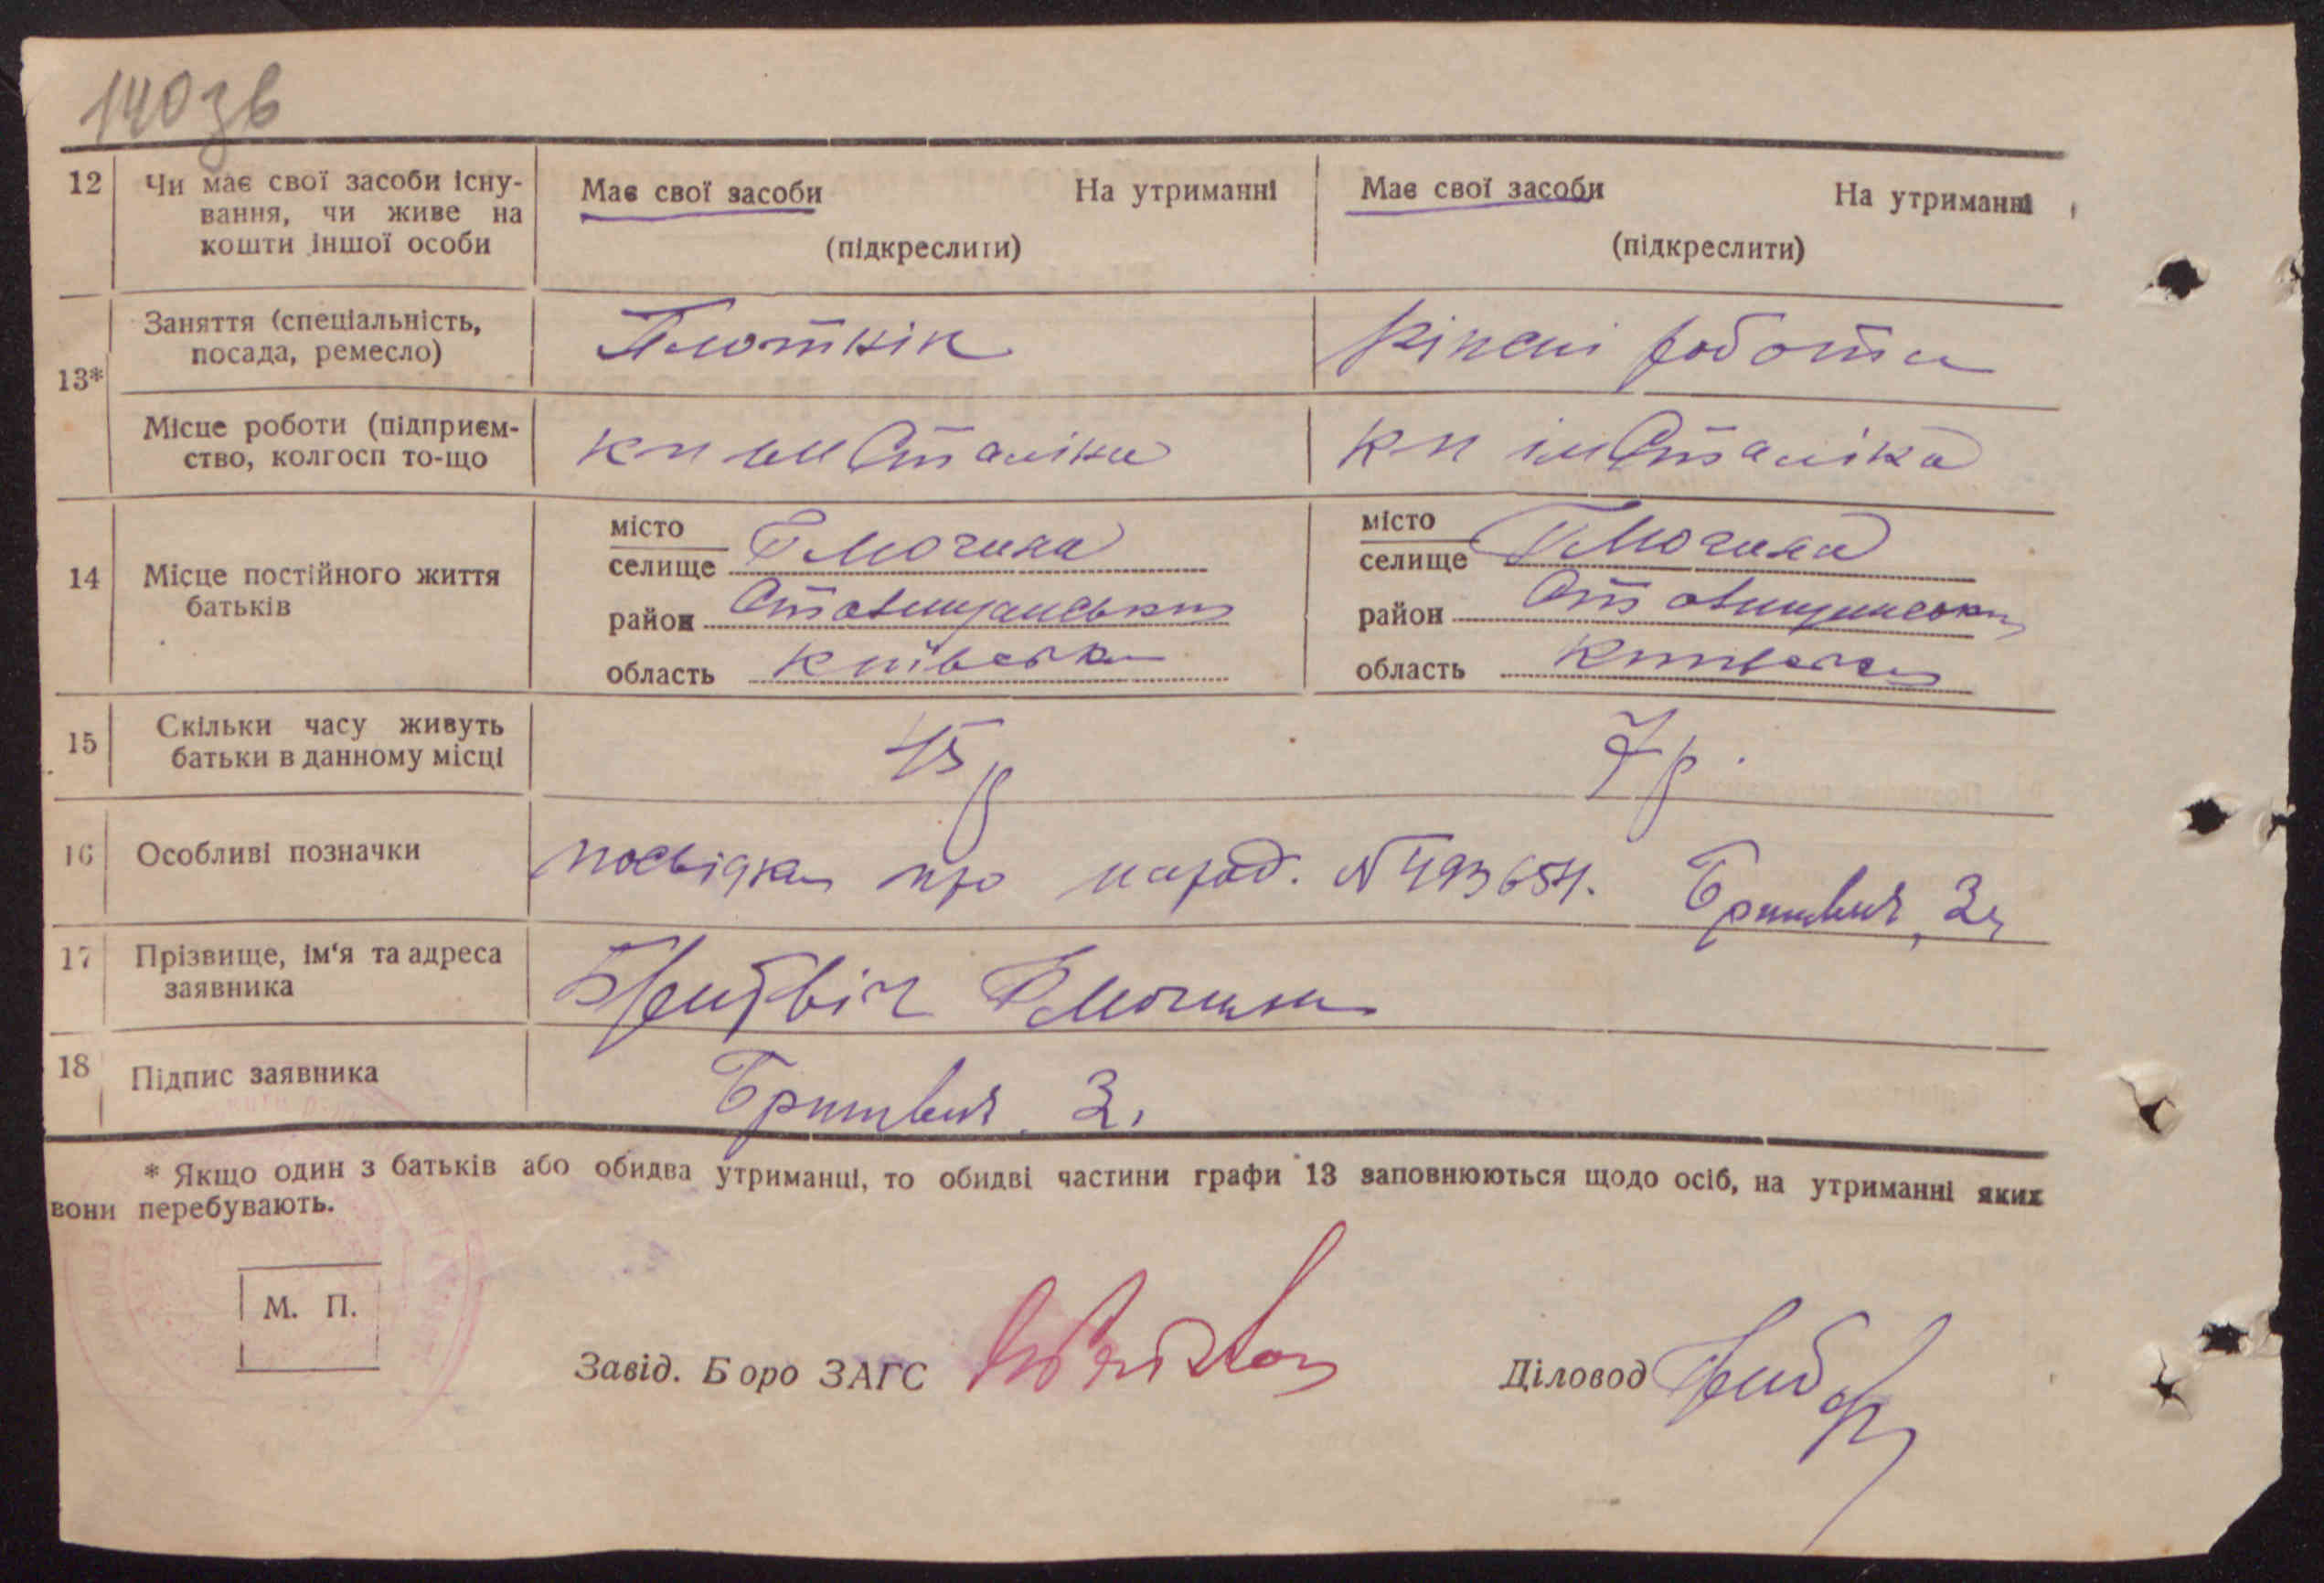 140зв
12 Чи має свої засоби існу- Має свої засоби На утриманні Має свої засоби На утриманні
вання, чи живе на
кошти іншої особи (підкреслити) (підкреслити)
13* Заняття (спеціальність, Плотнік Різні роботи
посада, ремесло)
Місце роботи (підприєм- кп ім Сталіна кп ім Сталіна
ство, колгосп то-що
14 Місце постійного життя місто місто
батьків селище Г Могила селище Г Могила
район Ставищанський район Ставищанський
область Київська область Київська
15 Скільки часу живуть 45 р 7 р.
батьки в данному місці
16 Особливі позначки посвідка про народ. № 493654. Бритвич З.
17 Прізвище, ім'я та адреса Бритвіч Г Могила
заявника
18 Підпис заявника Бритвич З.
* Якщо один з батьків або обидва утриманці, то обидві частини графи 13 заповнюються щодо осіб, на утриманні яких
вони перебувають.
М. П.
Завід. Боро ЗАГС
Діловод